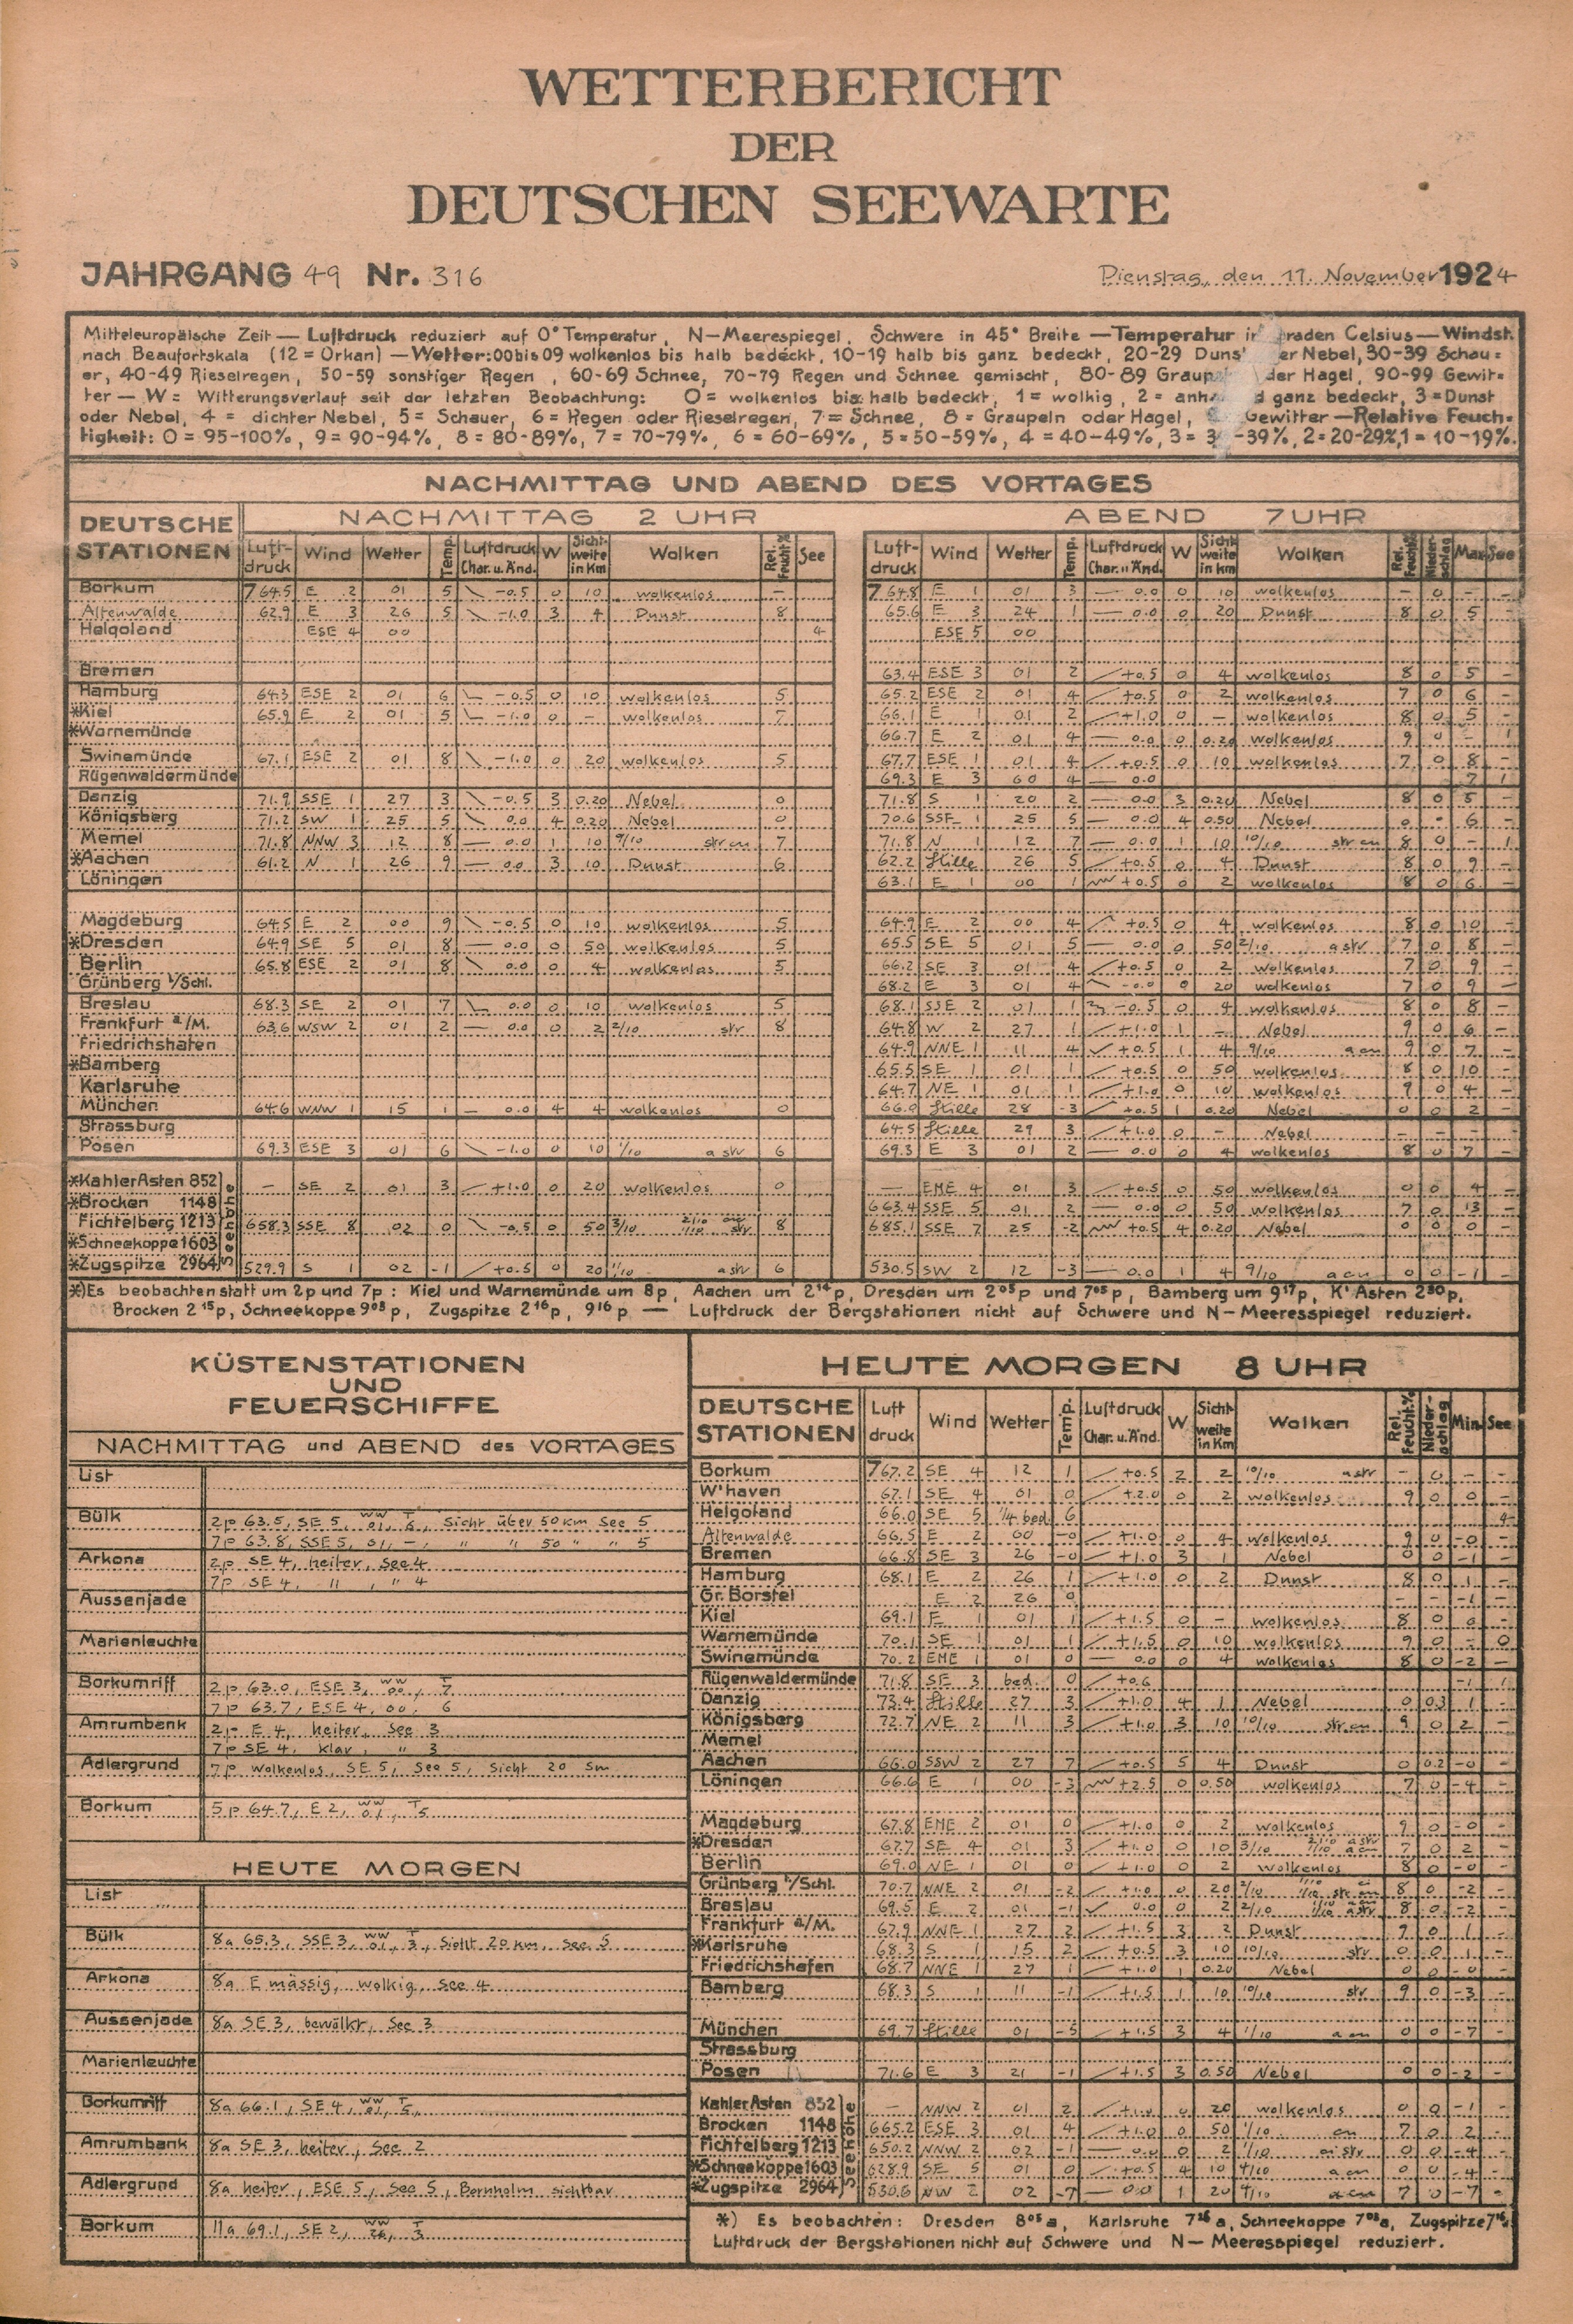 WETTERBERICHT
DER
DEUTSCHEN SEEWARTE
JAHRGANG 49 Nr. 316
Dienstag, den 11. November 1924
Mitteleuropäische Zeit — Luftdruck reduziert auf 0° Temperatur, N–Meerespiegel, Schwere in 45° Breite — Temperatur in raden Celsius — Windst.
nach Beaufortskala (12 = Orkan) — Wetter: 00 bis 09 wolkenlos bis halb bedeckt, 10-19 halb bis ganz bedeckt, 20-29 Duns er Nebel, 30-39 Schau=
er, 40-49 Rieselregen, 50-59 sonstiger Regen, 60-69 Schnee, 70-79 Regen und Schnee gemischt, 80-89 Graup der Hagel, 90-99 Gewit=
ter — W = Witterungsverlauf seit der letzten Beobachtung: 0 = wolkenlos bis halb bedeckt, 1 = wolkig, 2 = anh d ganz bedeckt, 3 = Dunst
oder Nebel, 4 = dichter Nebel, 5 = Schauer, 6 = Regen oder Rieselregen, 7 = Schnee, 8 = Graupeln oder Hagel, Gewitter — Relative Feuch=
tigkeit: 0 = 95-100%, 9 = 90-94%, 8 = 80-89%, 7 = 70-79%, 6 = 60-69%, 5 = 50-59%, 4 = 40-49%, 3 = 3 -39%, 2 = 20-29%, 1 = 10-19%.
NACHMITTAG UND ABEND DES VORTAGES
DEUTSCHE STATIONEN
NACHMITTAG 2 UHR
ABEND 7 UHR
Luft-druck Wind Wetter Temp. Luftdruck Char. u. Änd. W Sicht-weite in Km Wolken Rel. Feucht.% See
Luft-druck Wind Wetter Temp. Luftdruck Char. u. Änd. W Sicht-weite in Km Wolken Rel. Feucht.% Nieder-schlag Max See
Borkum 764.5 E 2 01 5 -0.5 0 10 wolkenlos — 764.8 E 1 01 3 — 0.0 0 10 wolkenlos — 0 — —
Altenwalde 62.9 E 3 26 5 -1.0 3 4 Dunst 8 65.6 E 3 24 1 — 0.0 0 20 Dunst 8 0 5 —
Helgoland ESE 4 00 4 ESE 5 00
Bremen 63.4 ESE 3 01 2 +0.5 0 4 wolkenlos 8 0 5 —
Hamburg 64.3 ESE 2 01 6 -0.5 0 10 wolkenlos 5 65.2 ESE 2 01 4 +0.5 0 2 wolkenlos 7 0 6 —
*Kiel 65.9 E 2 01 5 -1.0 0 — wolkenlos 7 66.1 E 1 01 2 +1.0 0 — wolkenlos 8 0 5 —
*Warnemünde 66.7 E 2 01 4 — 0.0 0 0.20 wolkenlos 9 0 — 1
Swinemünde 67.1 ESE 2 01 8 -1.0 0 20 wolkenlos 5 67.7 ESE 1 01 4 +0.5 0 10 wolkenlos 7 0 8 —
Rügenwaldermünde 69.3 E 3 60 4 — 0.0 7 1
Danzig 71.9 SSE 1 27 3 -0.5 3 0.20 Nebel 0 71.8 S 1 20 2 — 0.0 3 0.20 Nebel 8 0 5 —
Königsberg 71.2 SW 1 25 5 0.0 4 0.20 Nebel 0 70.6 SSE 1 25 5 — 0.0 4 0.50 Nebel 0 - 6 —
Memel 71.8 NNW 3 12 8 — 0.0 1 10 9/10 str cu 7 71.8 N 1 12 7 — 0.0 1 10 10/10 str cu 8 0 — 1
*Aachen 61.2 N 1 26 9 — 0.0 3 10 Dunst 6 62.2 Stille 26 5 +0.5 0 4 Dunst 8 0 9 —
Löningen 63.1 E 1 00 1 +0.5 0 2 wolkenlos 8 0 6 —
Magdeburg 64.5 E 2 00 9 -0.5 0 10 wolkenlos 5 64.9 E 2 00 4 +0.5 0 4 wolkenlos 8 0 10 —
*Dresden 64.9 SE 5 01 8 — 0.0 0 50 wolkenlos 5 65.5 SE 5 01 5 — 0.0 0 50 2/10 a str 7 0 8 —
Berlin 65.8 ESE 2 01 8 0.0 0 4 wolkenlos 5 66.2 SE 3 01 4 +0.5 0 2 wolkenlos 7 0 9 —
Grünberg i/Schl. 68.2 E 3 01 4 -0.0 0 20 wolkenlos 7 0 9 —
Breslau 68.3 SE 2 01 7 0.0 0 10 wolkenlos 5 68.1 SSE 2 01 1 -0.5 0 4 wolkenlos 8 0 8 —
Frankfurt a/M. 63.6 WSW 2 01 2 — 0.0 0 2 2/10 str 8 64.8 W 2 27 1 +1.0 1 — Nebel 9 0 6 —
Friedrichshafen 64.9 NNE 1 11 4 +0.5 1 4 9/10 a cu 9 0 7 —
*Bamberg 65.5 SE 1 01 1 +0.5 0 50 wolkenlos 8 0 10 —
Karlsruhe 64.7 NE 1 01 1 +1.0 0 10 wolkenlos 9 0 4 —
München 64.6 WNW 1 15 1 — 0.0 4 4 wolkenlos 0 66.0 Stille 28 -3 +0.5 1 0.20 Nebel 0 0 2 —
Strassburg 64.5 Stille 29 3 +1.0 0 — Nebel — — — —
Posen 69.3 ESE 3 01 6 -1.0 0 10 1/10 a str 6 69.3 E 3 01 2 — 0.0 0 4 wolkenlos 8 0 7 —
Seehöhe
*Kahler Asten 852 — SE 2 01 3 +1.0 0 20 wolkenlos 0 — ENE 4 01 3 +0.5 0 50 wolkenlos 0 0 4 —
*Brocken 1148 663.4 SSE 5 01 2 — 0.0 0 50 wolkenlos 7 0 13 —
Fichtelberg 1213 658.3 SSE 8 02 0 -0.5 0 50 3/10 str 8 685.1 SSE 7 25 -2 +0.5 4 0.20 Nebel 0 0 0 —
*Schneekoppe 1603
*Zugspitze 2964 529.9 S 1 02 -1 +0.5 0 20 1/10 a str 6 530.5 SW 2 12 -3 — 0.0 1 4 9/10 a cu 0 0 -1 —
*) Es beobachten statt um 2p und 7p: Kiel und Warnemünde um 8p, Aachen um 2¹⁴p, Dresden um 2⁰⁵p und 7⁰⁵p, Bamberg um 9¹⁷p, K' Asten 2³⁰p,
Brocken 2¹⁵p, Schneekoppe 9⁰³p, Zugspitze 2¹⁶p, 9¹⁶p — Luftdruck der Bergstationen nicht auf Schwere und N–Meeresspiegel reduziert.
KÜSTENSTATIONEN
UND
FEUERSCHIFFE
NACHMITTAG und ABEND des VORTAGES
List
Bülk 2p 63.5, SE 5, ww 01, T 6, Sicht über 50 km See 5
7p 63.8, SSE 5, 01, –, " " 50 " " 5
Arkona 2p SE 4, heiter, See 4
7p SE 4, " , " 4
Aussenjade
Marienleuchte
Borkumriff 2p 63.0, ESE 3, ww 00, T 7
7p 63.7, ESE 4, 00, 6
Amrumbank 2p E 4, heiter, See 3
7p SE 4, klar, " 3
Adlergrund 7p wolkenlos, SE 5, See 5, Sicht 20 sm
Borkum 5p 64.7, E 2, ww 01, T 5
HEUTE MORGEN
List
Bülk 8a 65.3, SSE 3, ww 01, T 3, Sicht 20 km, See 5
Arkona 8a E mässig, wolkig, See 4
Aussenjade 8a SE 3, bewölkt, See 3
Marienleuchte
Borkumriff 8a 66.1, SE 4, ww 01, T 5,
Amrumbank 8a SE 3, heiter, See 2
Adlergrund 8a heiter, ESE 5, See 5, Bornholm sichtbar
Borkum 11a 69.1, SE 2, ww 26, T 3
HEUTE MORGEN 8 UHR
DEUTSCHE STATIONEN Luft druck Wind Wetter Temp. Luftdruck Char. u. Änd. W Sicht-weite in Km Wolken Rel. Feucht.% Nieder-schlag Min See
Borkum 767.2 SE 4 12 1 +0.5 2 2 10/10 a str — 0 — —
W'haven 67.1 SE 4 01 0 +2.0 0 2 wolkenlos 9 0 0 —
Helgoland 66.0 SE 5 1/4 bed. 6 4
Altenwalde 66.5 E 2 60 -0 +1.0 0 4 wolkenlos 9 0 -0 —
Bremen 66.8 SE 3 26 -0 +1.0 3 1 Nebel 0 0 -1 —
Hamburg 68.1 E 2 26 1 +1.0 0 2 Dunst 8 0 1 —
Gr. Borstel E 2 26 0 — — -1 —
Kiel 69.1 E 1 01 1 +1.5 0 — wolkenlos 8 0 0 —
Warnemünde 70.1 SE 1 01 1 +1.5 0 10 wolkenlos 9 0 — 0
Swinemünde 70.2 ENE 1 01 0 — 0.0 0 4 wolkenlos 8 0 -2 —
Rügenwaldermünde 71.8 SE 3 bed. 0 +0.6 -1 1
Danzig 73.4 Stille 27 3 +1.0 4 1 Nebel 0 0.3 1 —
Königsberg 72.7 NE 2 11 3 +1.0 3 10 10/10 str cu 9 0 2 —
Memel
Aachen 66.0 SSW 2 27 7 +0.5 5 4 Dunst 0 0.2 -0 —
Löningen 66.6 E 1 00 -3 +2.5 0 0.50 wolkenlos 7 0 -4 —
Magdeburg 67.8 ENE 2 01 0 +1.0 0 2 wolkenlos 9 0 -0 —
*Dresden 67.7 SE 4 01 3 +1.0 0 10 3/10 2/10 a str 1/10 a cu 7 0 2 —
Berlin 69.0 NE 1 01 0 +1.0 0 2 wolkenlos 8 0 -0 —
Grünberg i/Schl. 70.7 NNE 2 01 -2 +1.0 0 20 2/10 8 0 -2 —
Breslau 69.5 E 2 01 -1 0.0 0 2 2/10 8 0 -2 —
Frankfurt a/M. 67.9 NNE 1 27 2 +1.5 3 2 Dunst 9 0 1 —
*Karlsruhe 68.3 S 1 15 2 +0.5 3 10 10/10 str 0 0 1 —
Friedrichshafen 68.7 NNE 1 27 1 +1.0 1 0.20 Nebel 0 0 -0 —
Bamberg 68.3 S 1 11 -1 +1.5 1 10 10/10 str 9 0 -3 —
München 69.7 Stille 01 -5 +1.5 3 4 1/10 a cu 0 0 -7 —
Strassburg
Posen 71.6 E 3 21 -1 +1.5 3 0.50 Nebel 0 0 -2 —
Seehöhe
Kahler Asten 852 — NNW 2 01 2 +1.0 0 20 wolkenlos 0 0 -1 —
Brocken 1148 665.2 ESE 3 01 4 +1.0 0 50 1/10 cu 7 0 2 —
Fichtelberg 1213 650.2 NNW 2 02 -1 — 0.0 0 2 1/10 ci str 0 0 -4 —
*Schneekoppe 1603 628.9 SE 5 01 0 +0.5 4 10 4/10 a cu 0 0 -4 —
*Zugspitze 2964 530.6 NW 2 02 -7 — 0.0 1 20 4/10 a cu 7 0 -7 —
*) Es beobachten: Dresden 8⁰⁵a, Karlsruhe 7²⁶a, Schneekoppe 7⁰³a, Zugspitze 7¹⁶
Luftdruck der Bergstationen nicht auf Schwere und N–Meeresspiegel reduziert.